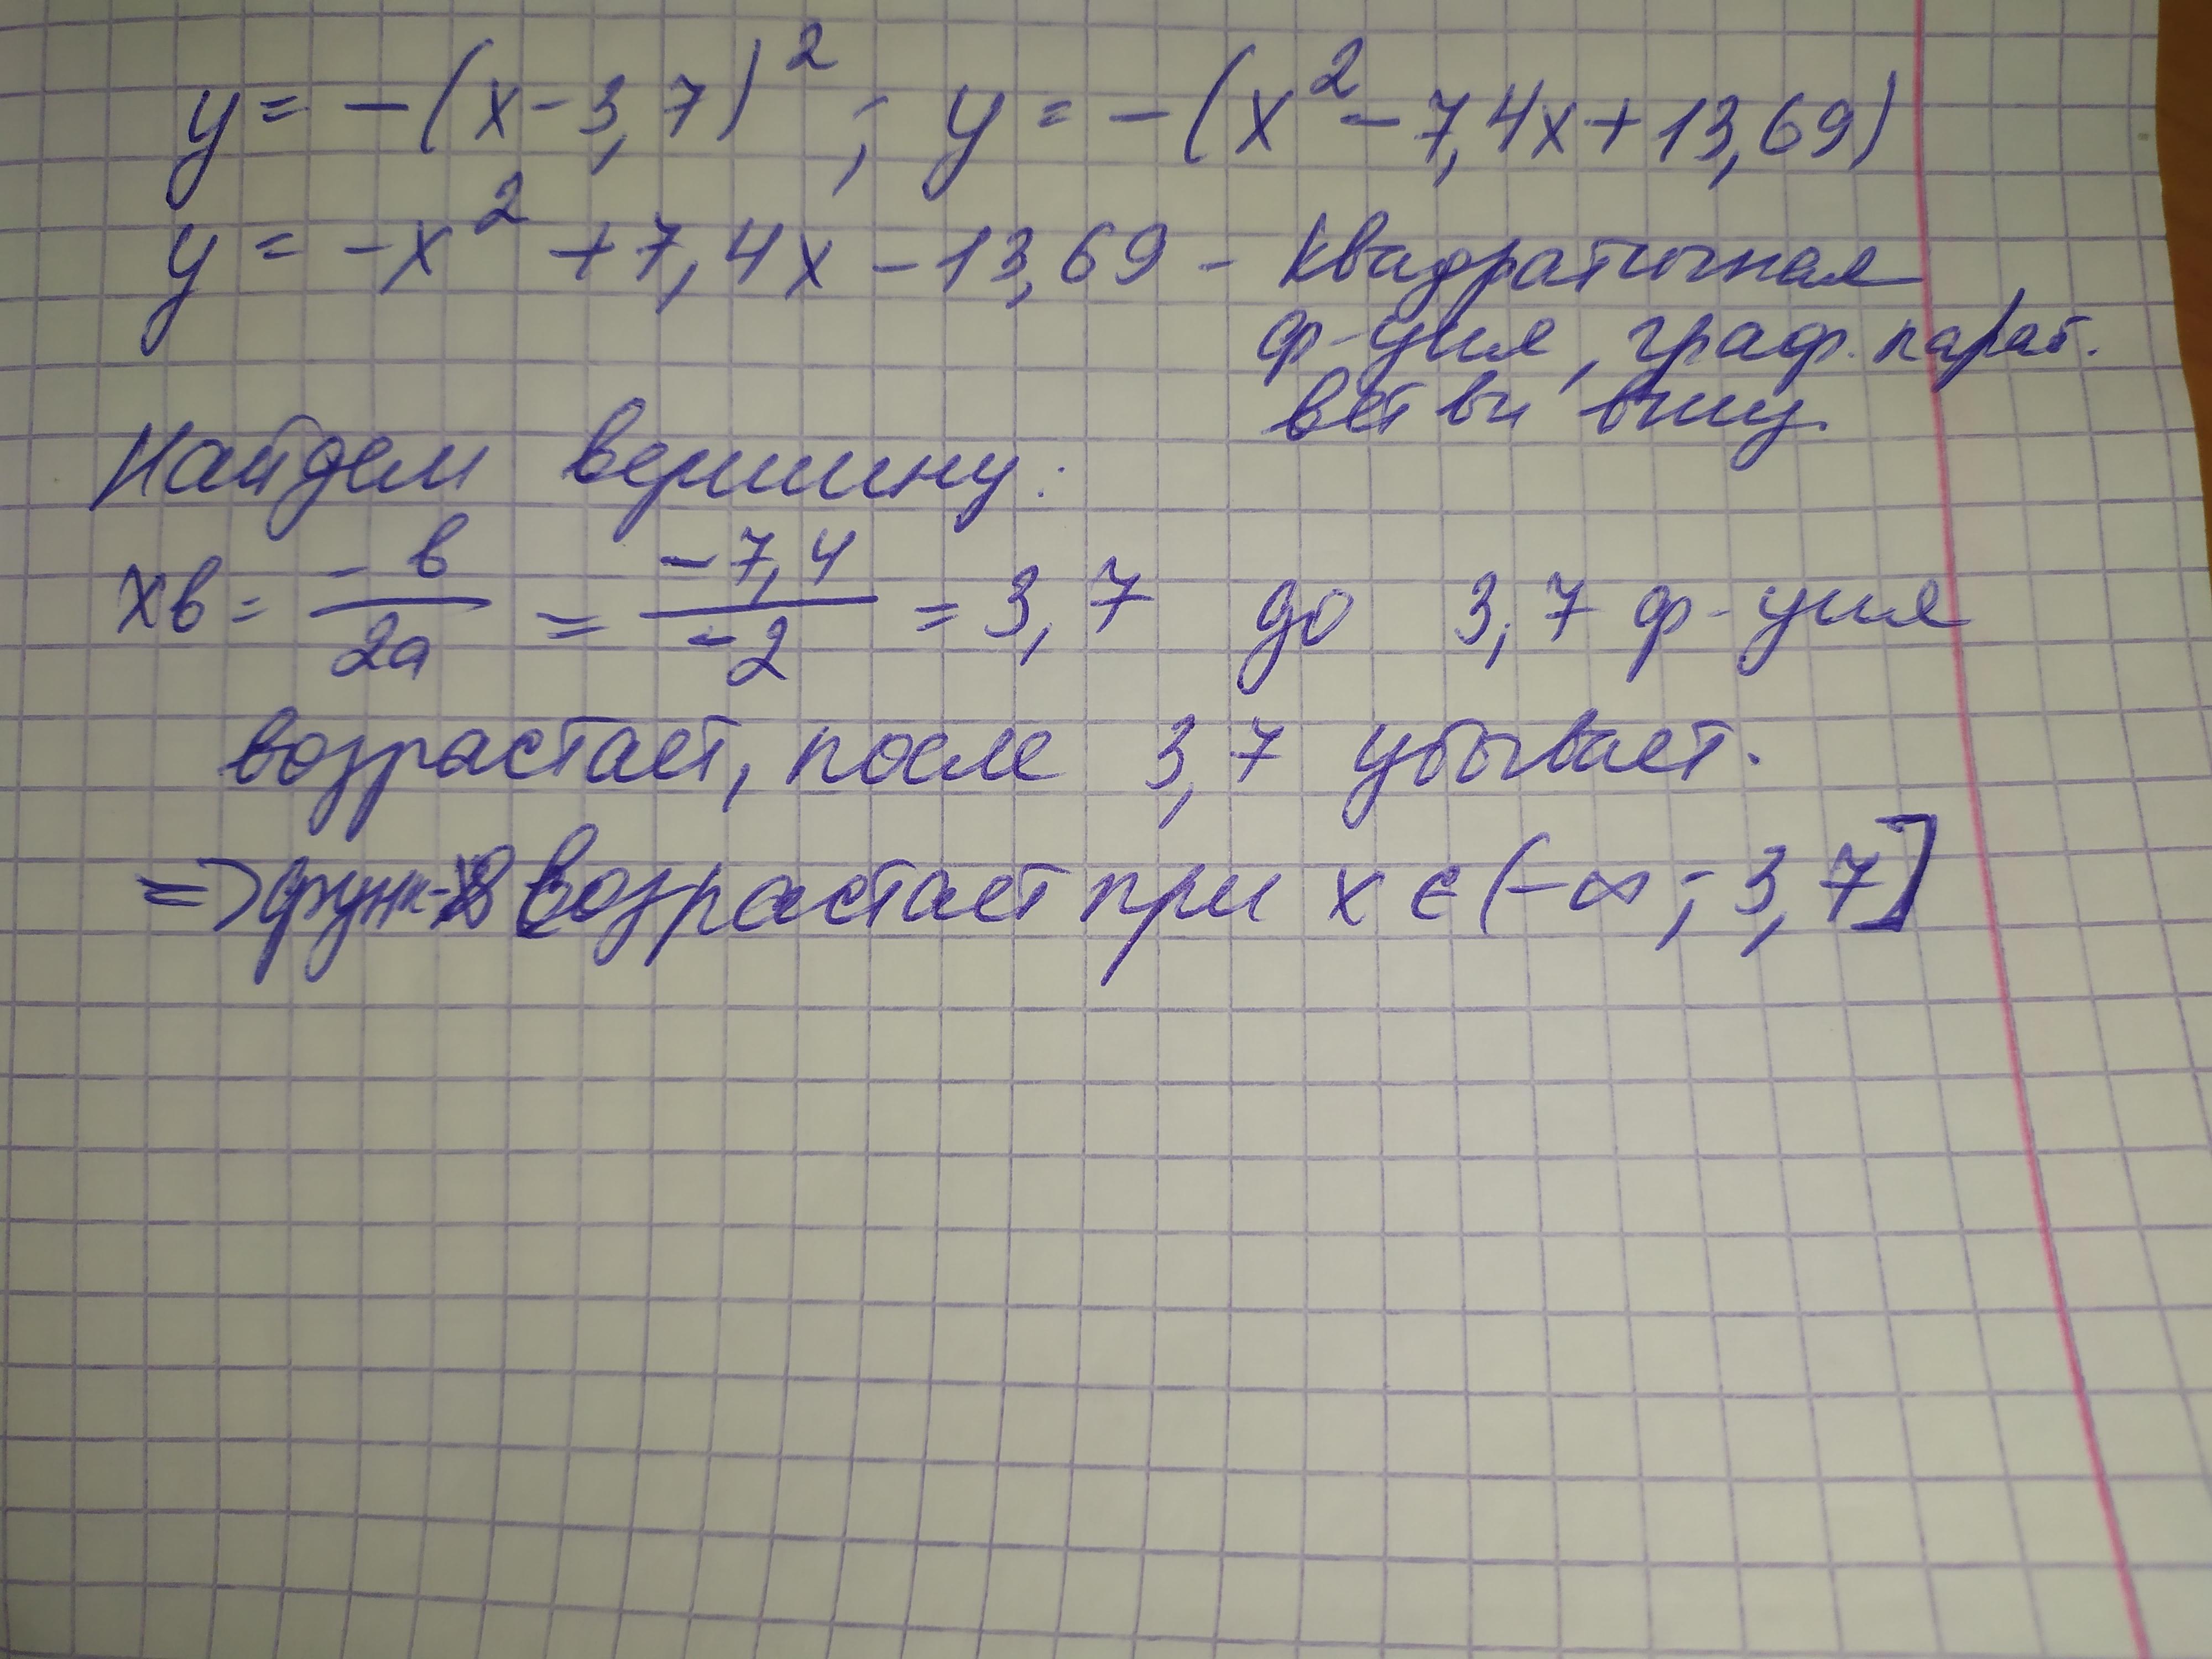 y = -(x-3,7)² ; y = -(x²-7,4x+13,69)
y = -x² +7,4x -13,69 - квадратичная
ф-ция, граф. параб.
ветви вниз
Найдем вершину:
xв = -в/2a = -7,4/-2 = 3,7 до 3,7 ф-ция
возрастает, после 3,7 убывает.
=> функ-я возрастает при x ∈ (-∞; 3,7]